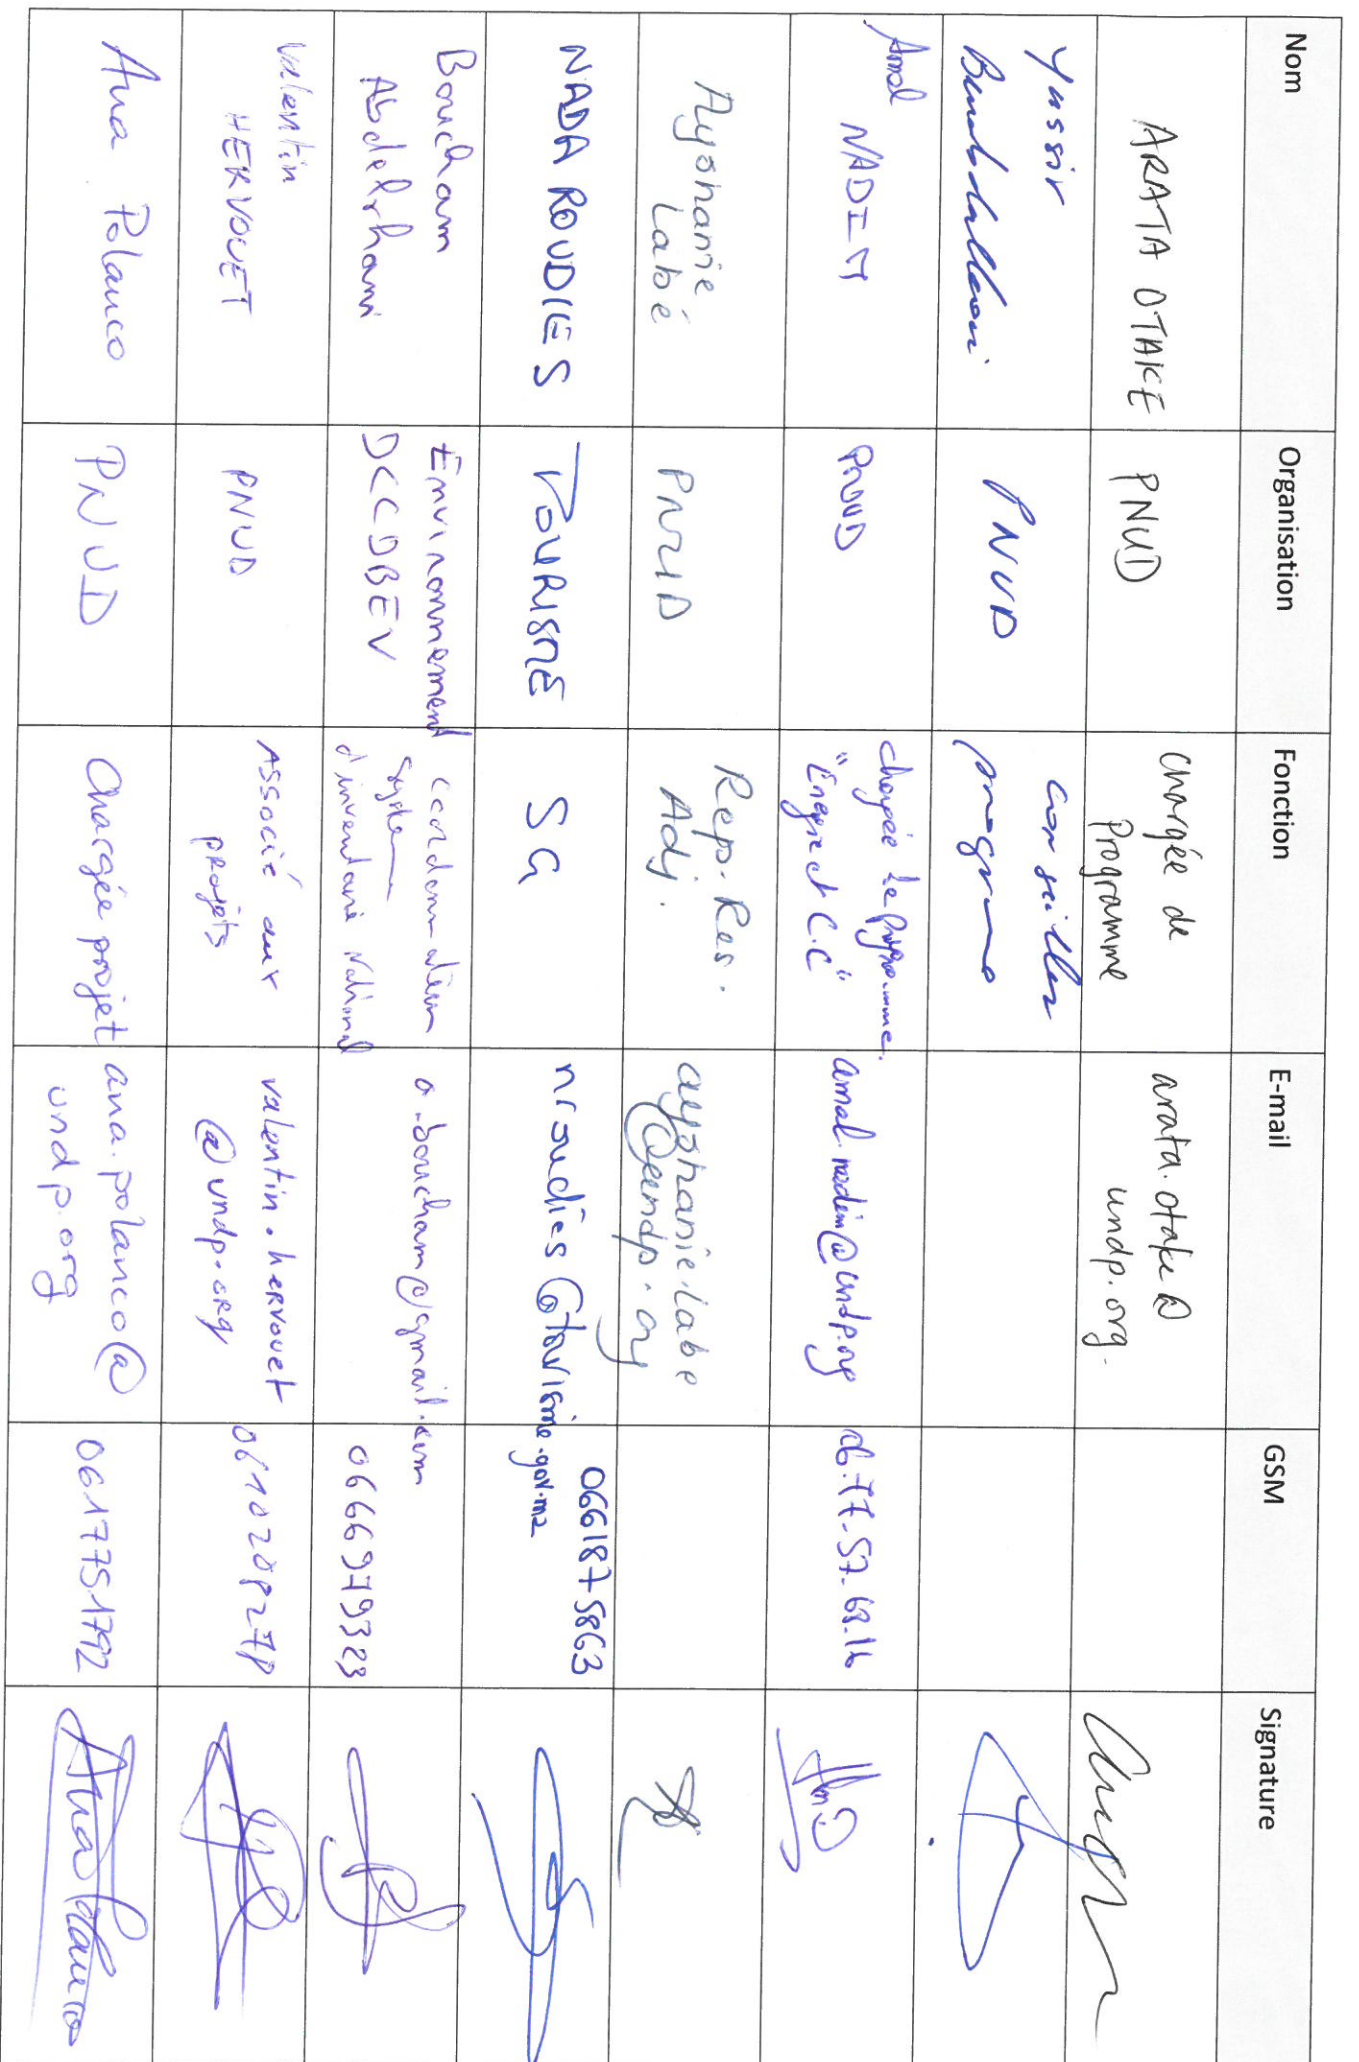 Nom Organisation Fonction E-mail GSM Signature
ARATA OTAKE PNUD chargée de
Programme arata.otake@
undp.org.
Yassir
PNUD conseiller
programme
Amal NADIM PNUD chargée de Programme.
"Energie et C.C" amal.nadim@undp.org 06.77.57.68.16
Ayshanie
Labé PNUD Rep. Res.
Adj. ayshanie.labe
@undp.org
NADA ROUDIES TOURISME SG nroudies@tourisme.gov.ma 0661875863
Boucham
Abdelrhani Environnement
DCCDBEV
d'inventaire National a.boucham@gmail.com 0666979323
Valentin
HERVOUET PNUD Associé aux
projets valentin.hervouet
@undp.org
Ana Polanco PNUD Chargée projet ana.polanco@
undp.org 0617751792
Ana Polanco